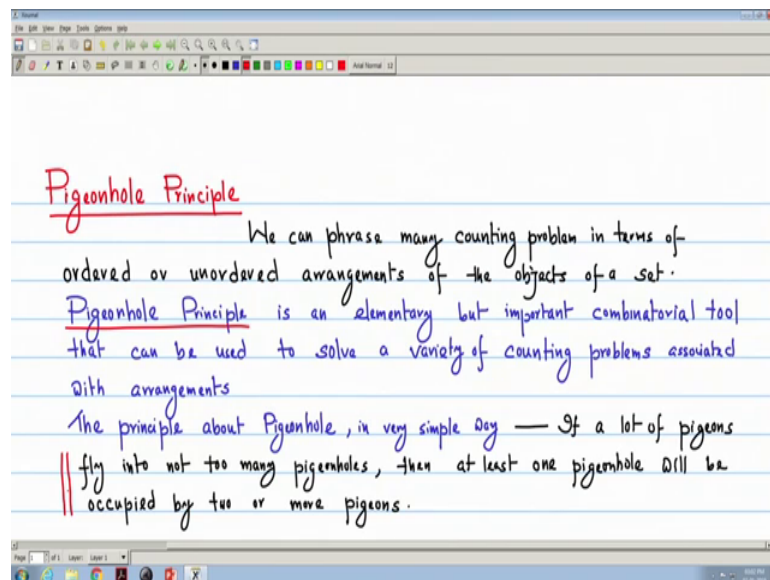 Journal
File Edit View Page Tools Options Help
Arial Normal 12
Pigeonhole Principle
We can phrase many counting problem in terms of
ordered or unordered arrangements of the objects of a set.
Pigeonhole Principle is an elementary but important combinatorial tool
that can be used to solve a variety of counting problems associated
with arrangements
The principle about Pigeonhole, in very simple way — If a lot of pigeons
fly into not too many pigeonholes, then at least one pigeonhole will be
occupied by two or more pigeons.
Page 1 of 1 Layer: Layer 1